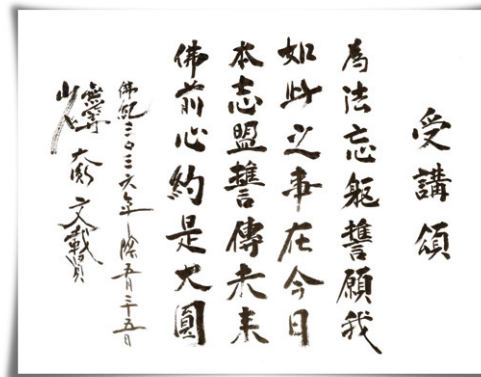 受講頌
為法忘軀誓願我
如此之事在今日
本志盟誓傳未来
佛前心約是大圓
佛紀二〇三六年 陰五月二十五日
文載賢